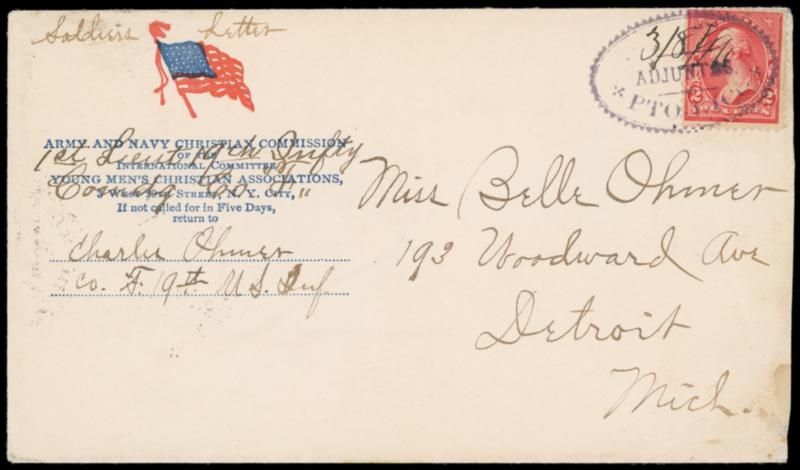 Soldiers Letter
ARMY AND NAVY CHRISTIAN COMMISSION
OF THE
1st Lieut 19th Infty
INTERNATIONAL COMMITTEE
YOUNG MEN'S CHRISTIAN ASSOCIATIONS,
Comdg Co "F"
3 WEST 29TH STREET, N. Y. CITY,
If not called for in Five Days,
return to
Charlie Ohmer
Co. F. 19th U S. Inf
3/8
ADJUNTAS.
PTO. RICO
2 TWO CENTS 2
Miss Belle Ohmer
193 Woodward Ave
Detroit
Mich.